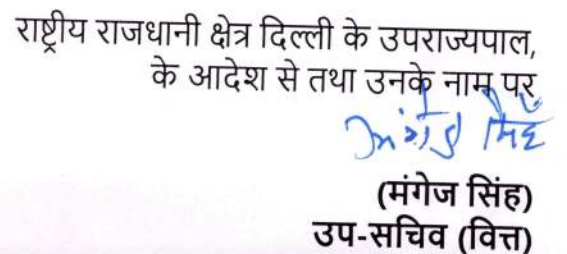 राष्ट्रीय राजधानी क्षेत्र दिल्ली के उपराज्यपाल,
के आदेश से तथा उनके नाम पर
मंगेज सिंह
(मंगेज सिंह)
उप-सचिव (वित्त)